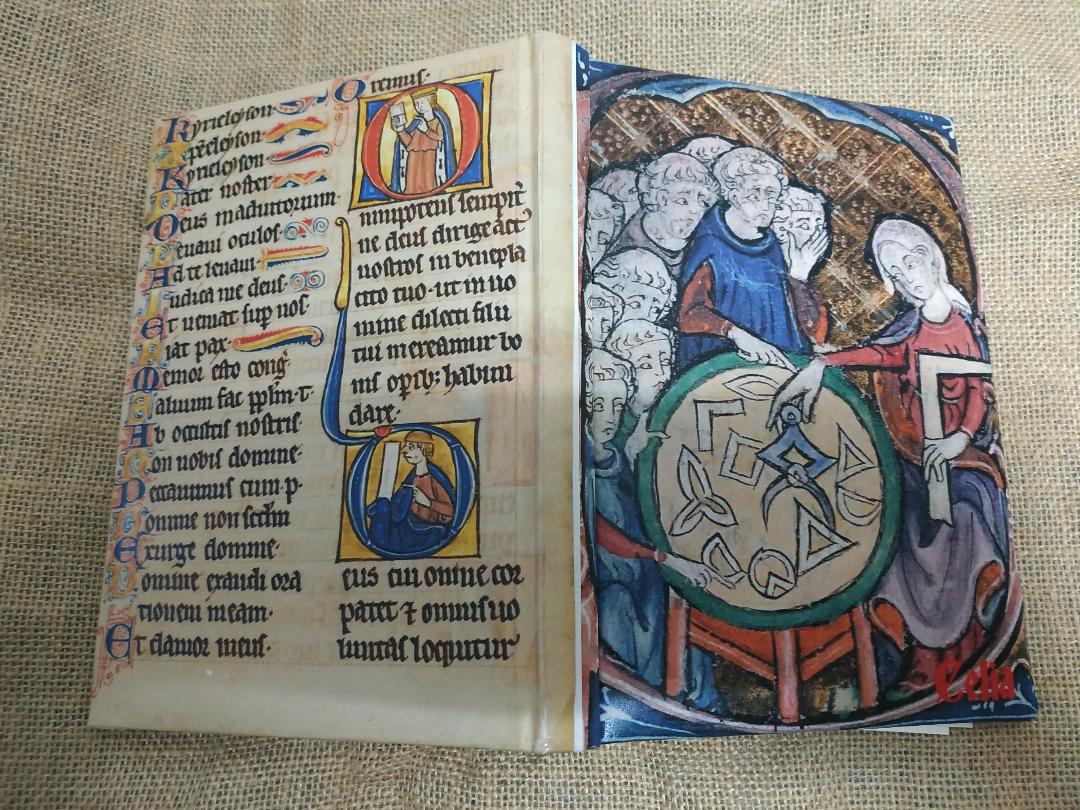 Kyrieleyson·
Xp̄eeleyson·
Kyrieleyson
Pater noster
Deus in adiutorium·
Levavi oculos·
Ad te levavi·
Iudica me deus·
Et veniat sup nos·
Fiat pax·
Memor esto cong̃·
Salvum fac pp̄lm·t·
Ab occultis nostris
Non nobis domine·
Peccavimus cum p·
Domine non scd̄m
Exurge domine·
Domine exaudi ora
tionem meam·
Et clamor meus·
Oremus·
Omnipotens sempit̃
ne deus dirige act
nostros in benepla
cito tuo·ut in no
mine dilecti filii
tui mereamur bo
nis opib; habun
dare·
Deus cui omne cor
patet ⁊ omnis vo
luntas loquitur
Celia